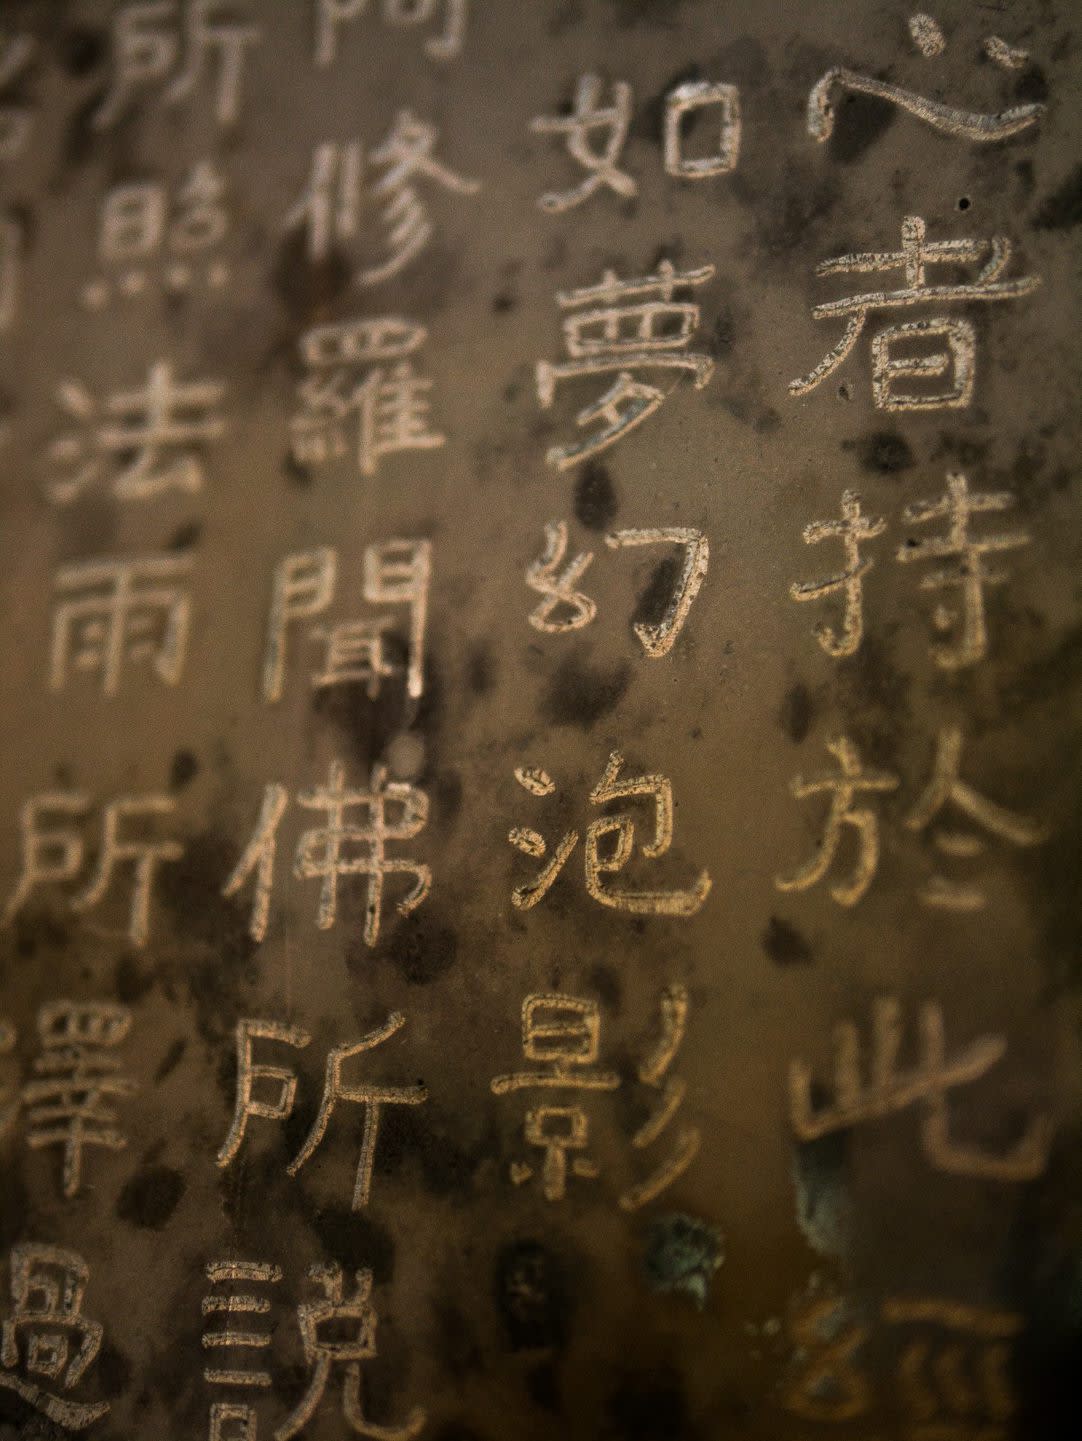 心者持於此經
如夢幻泡影
阿修羅聞佛所說
所照法雨所澤
過